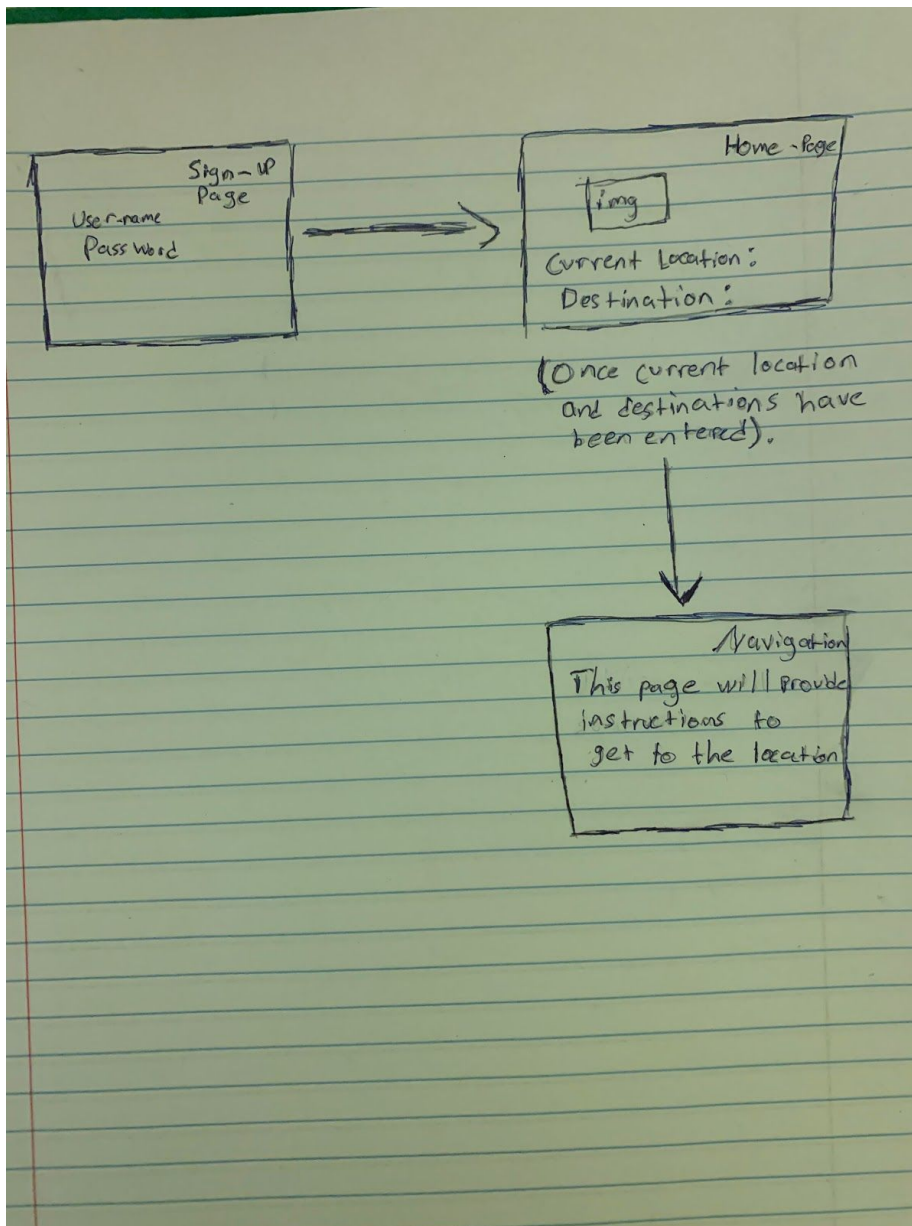 Sign-UP
Page
User-name
Password
Home-Page
img
Current Location:
Destination:
(Once current location
and destinations have
been entered).
Navigation
This page will provide
instructions to
get to the location